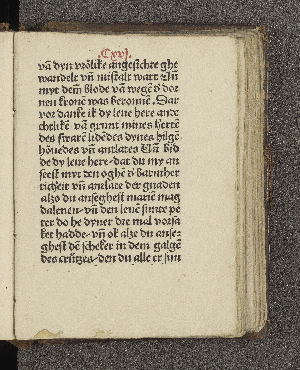 .Cxvj.
vā dyn vrölike angesichte ghe
wandelt vñ mistalt wart Vñ
myt dem blode vā wegē d̄ dor
nen kronē was beronnē. Dar
vor danke ik dy leue here ande
chtlikē vā grunt mines hertē
des swarē lidēdes dynes hilgē
hōuedes vñ antlates Vñ bid
de dy leue here dat du my an
seest myt den oghē d̄ barmher
ticheit vñ antlate der gnaden
alzo du anseghest marien mag
dalenen vñ den leuē sunte pe
ter do he dyner dre mal vorsa
ket hadde vñ ok alze du anse
ghest dē scheker in dem galgē
des crützes den du alle er sun